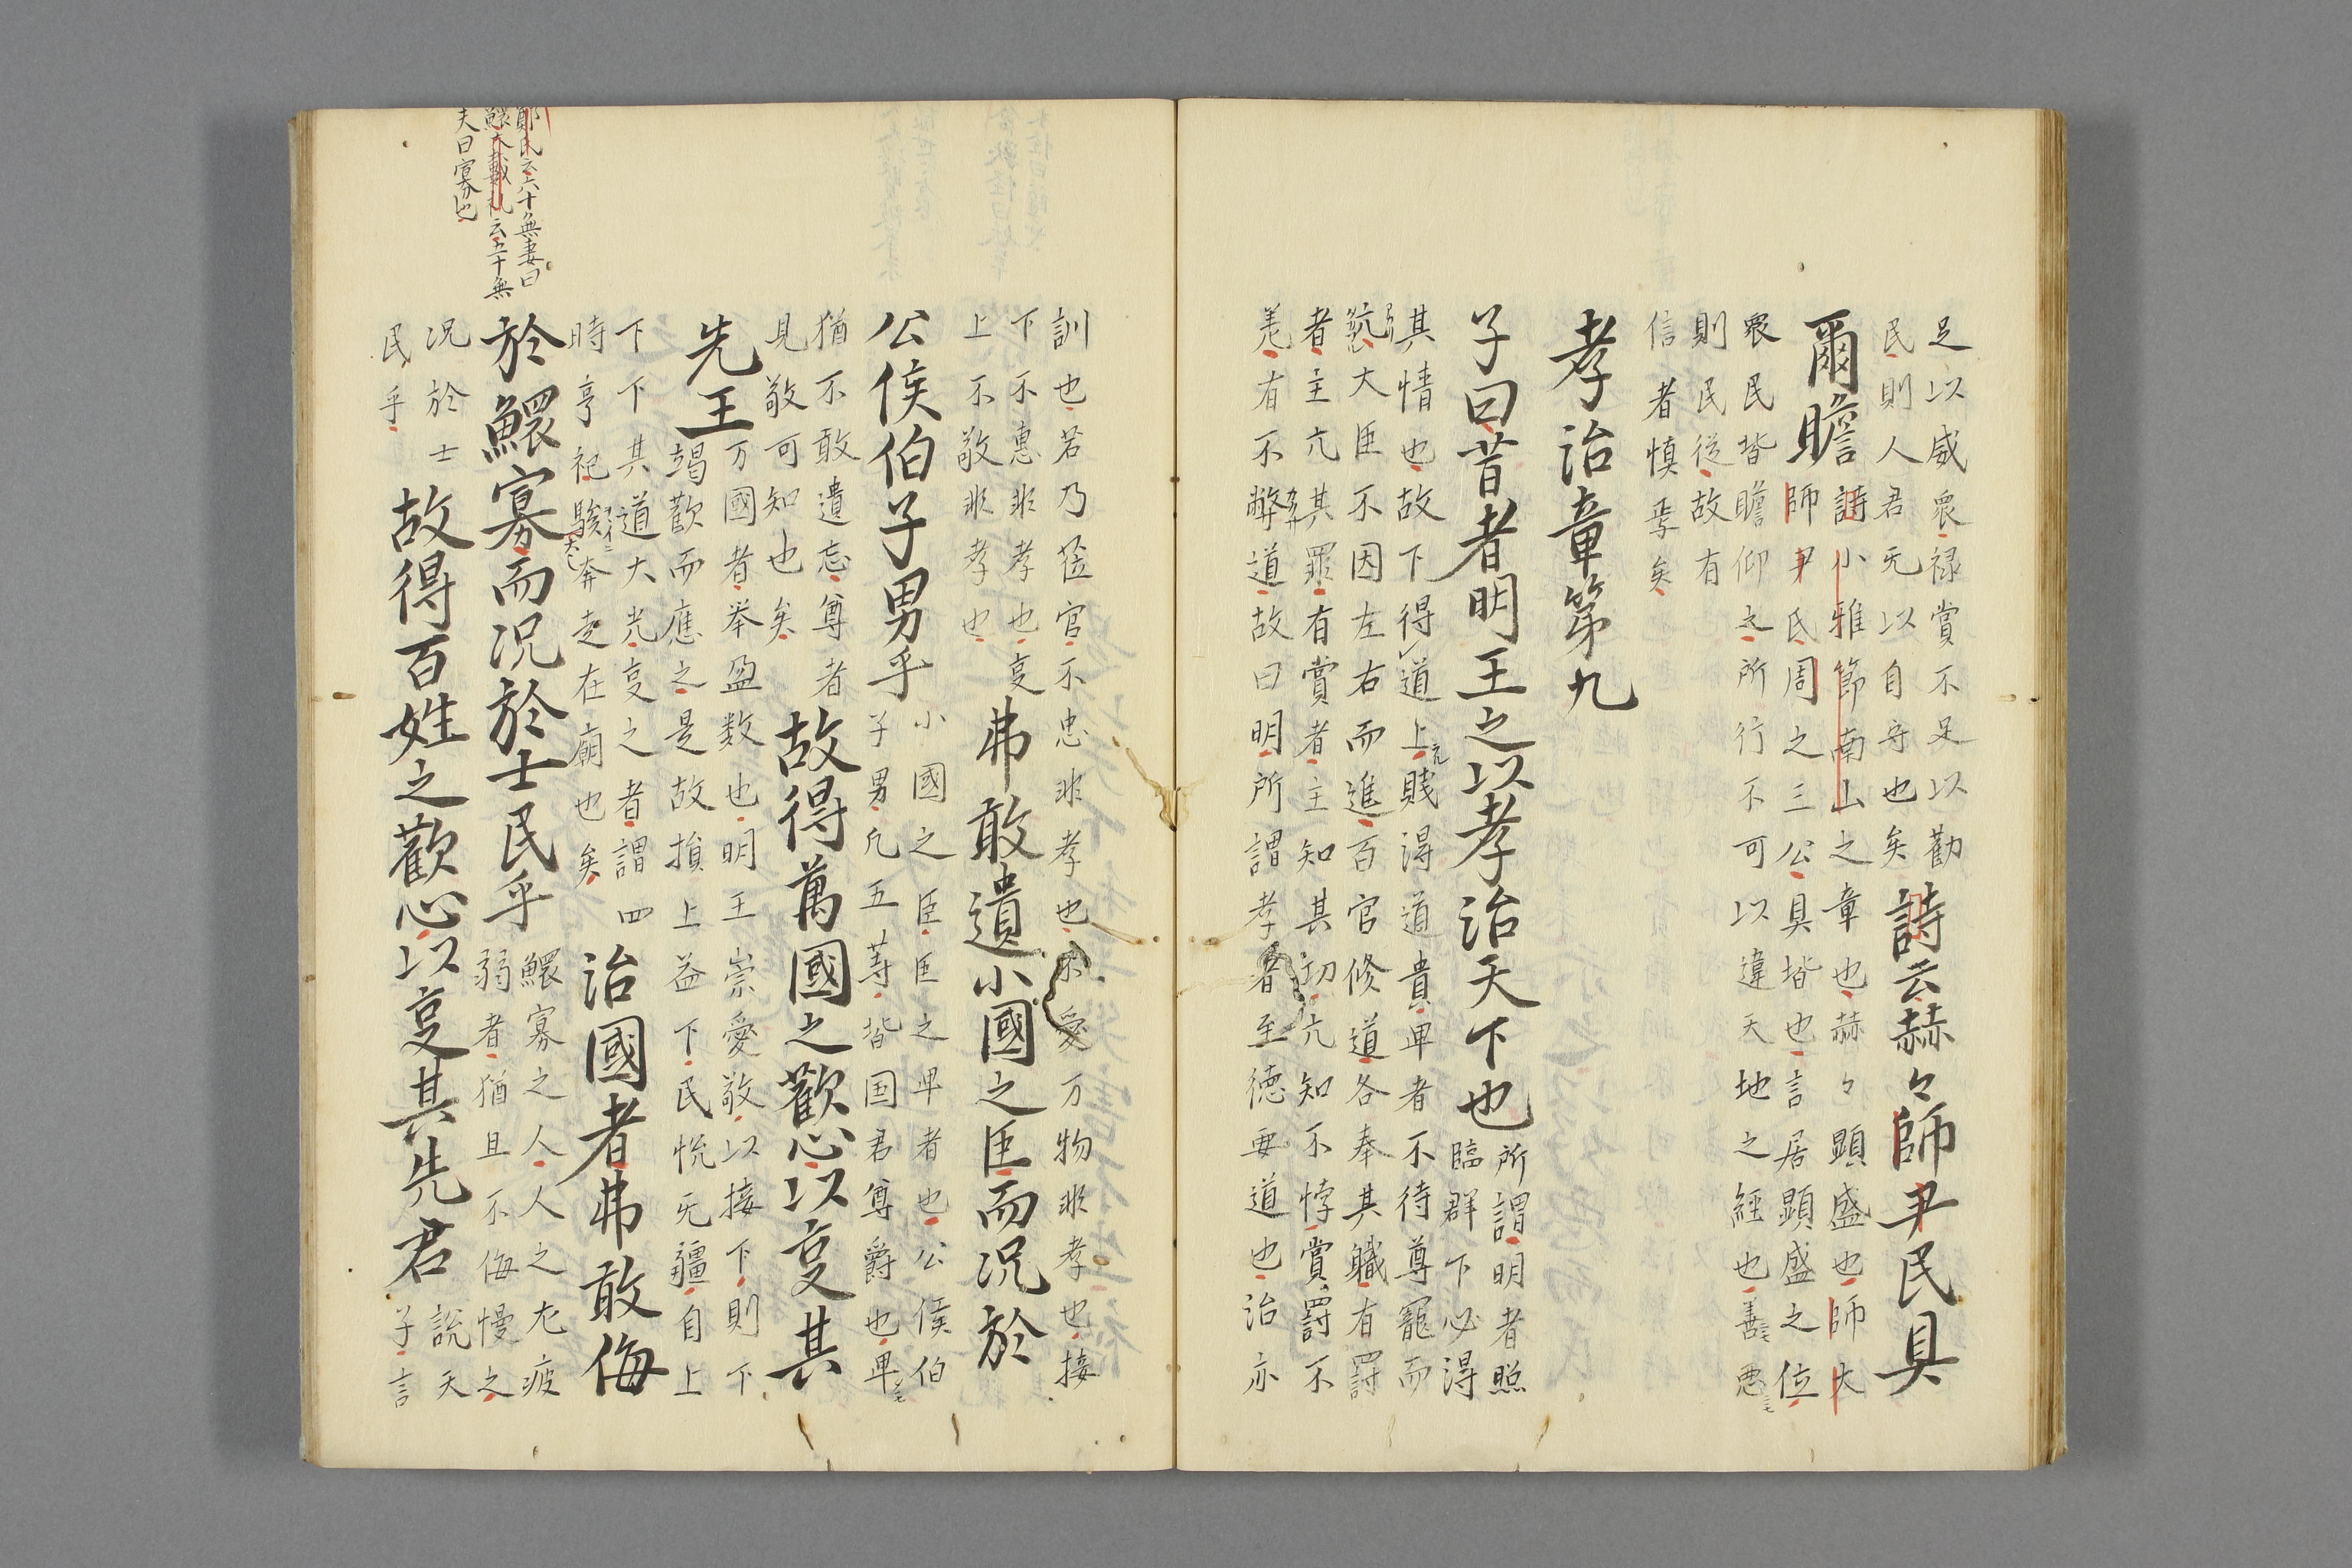 足以威衆禄賞不足以勸
民則人君无以自守也矣 詩云赫々師尹民具
爾瞻 詩小雅節南山之章也赫々顕盛也師大
師尹氏周之三公具皆也言居顕盛之位
衆民皆瞻仰之所行不可以違天地之経也善悪
則民従故有
信者慎孚矣
孝治章第九
子曰昔者明王之以孝治天下也 所謂明者照
臨群下必得
其情也故下得道上賎得道貴卑者不待尊寵而
亢大臣不因左右而進百官修道各奉其職有罰
者主亢其罪有賞者主知其功亢知不悖賞罰不
差有不弊道故曰明所謂孝者至徳要道也治亦
訓也若乃莅官不忠非孝也不愛万物非孝也接
下不惠非孝也㕝
上不敬非孝也 弗敢遺小國之臣而況於
公侯伯子男乎 小國之臣臣之卑者也公侯伯
子男凡五等皆国君尊爵也卑
猶不敢遺忘尊者
見敬可知也矣 故得萬國之歡心以㕝其
先王 万國者挙盈数也明王崇愛敬以接下則下
竭歡而應之是故損上益下民悦无疆自上
下下其道大光㕝之者謂四
時享祀駿奔走在廟也矣 治國者弗敢侮
於鰥寡而況於士民乎 鰥寡之人人之尢疲
弱者猶且不侮慢之
況於士
民乎 故得百姓之歡心以㕝其先君 説天
子言
鄭氏云六十無妻曰
鰥大戴礼云五十無
夫曰寡也